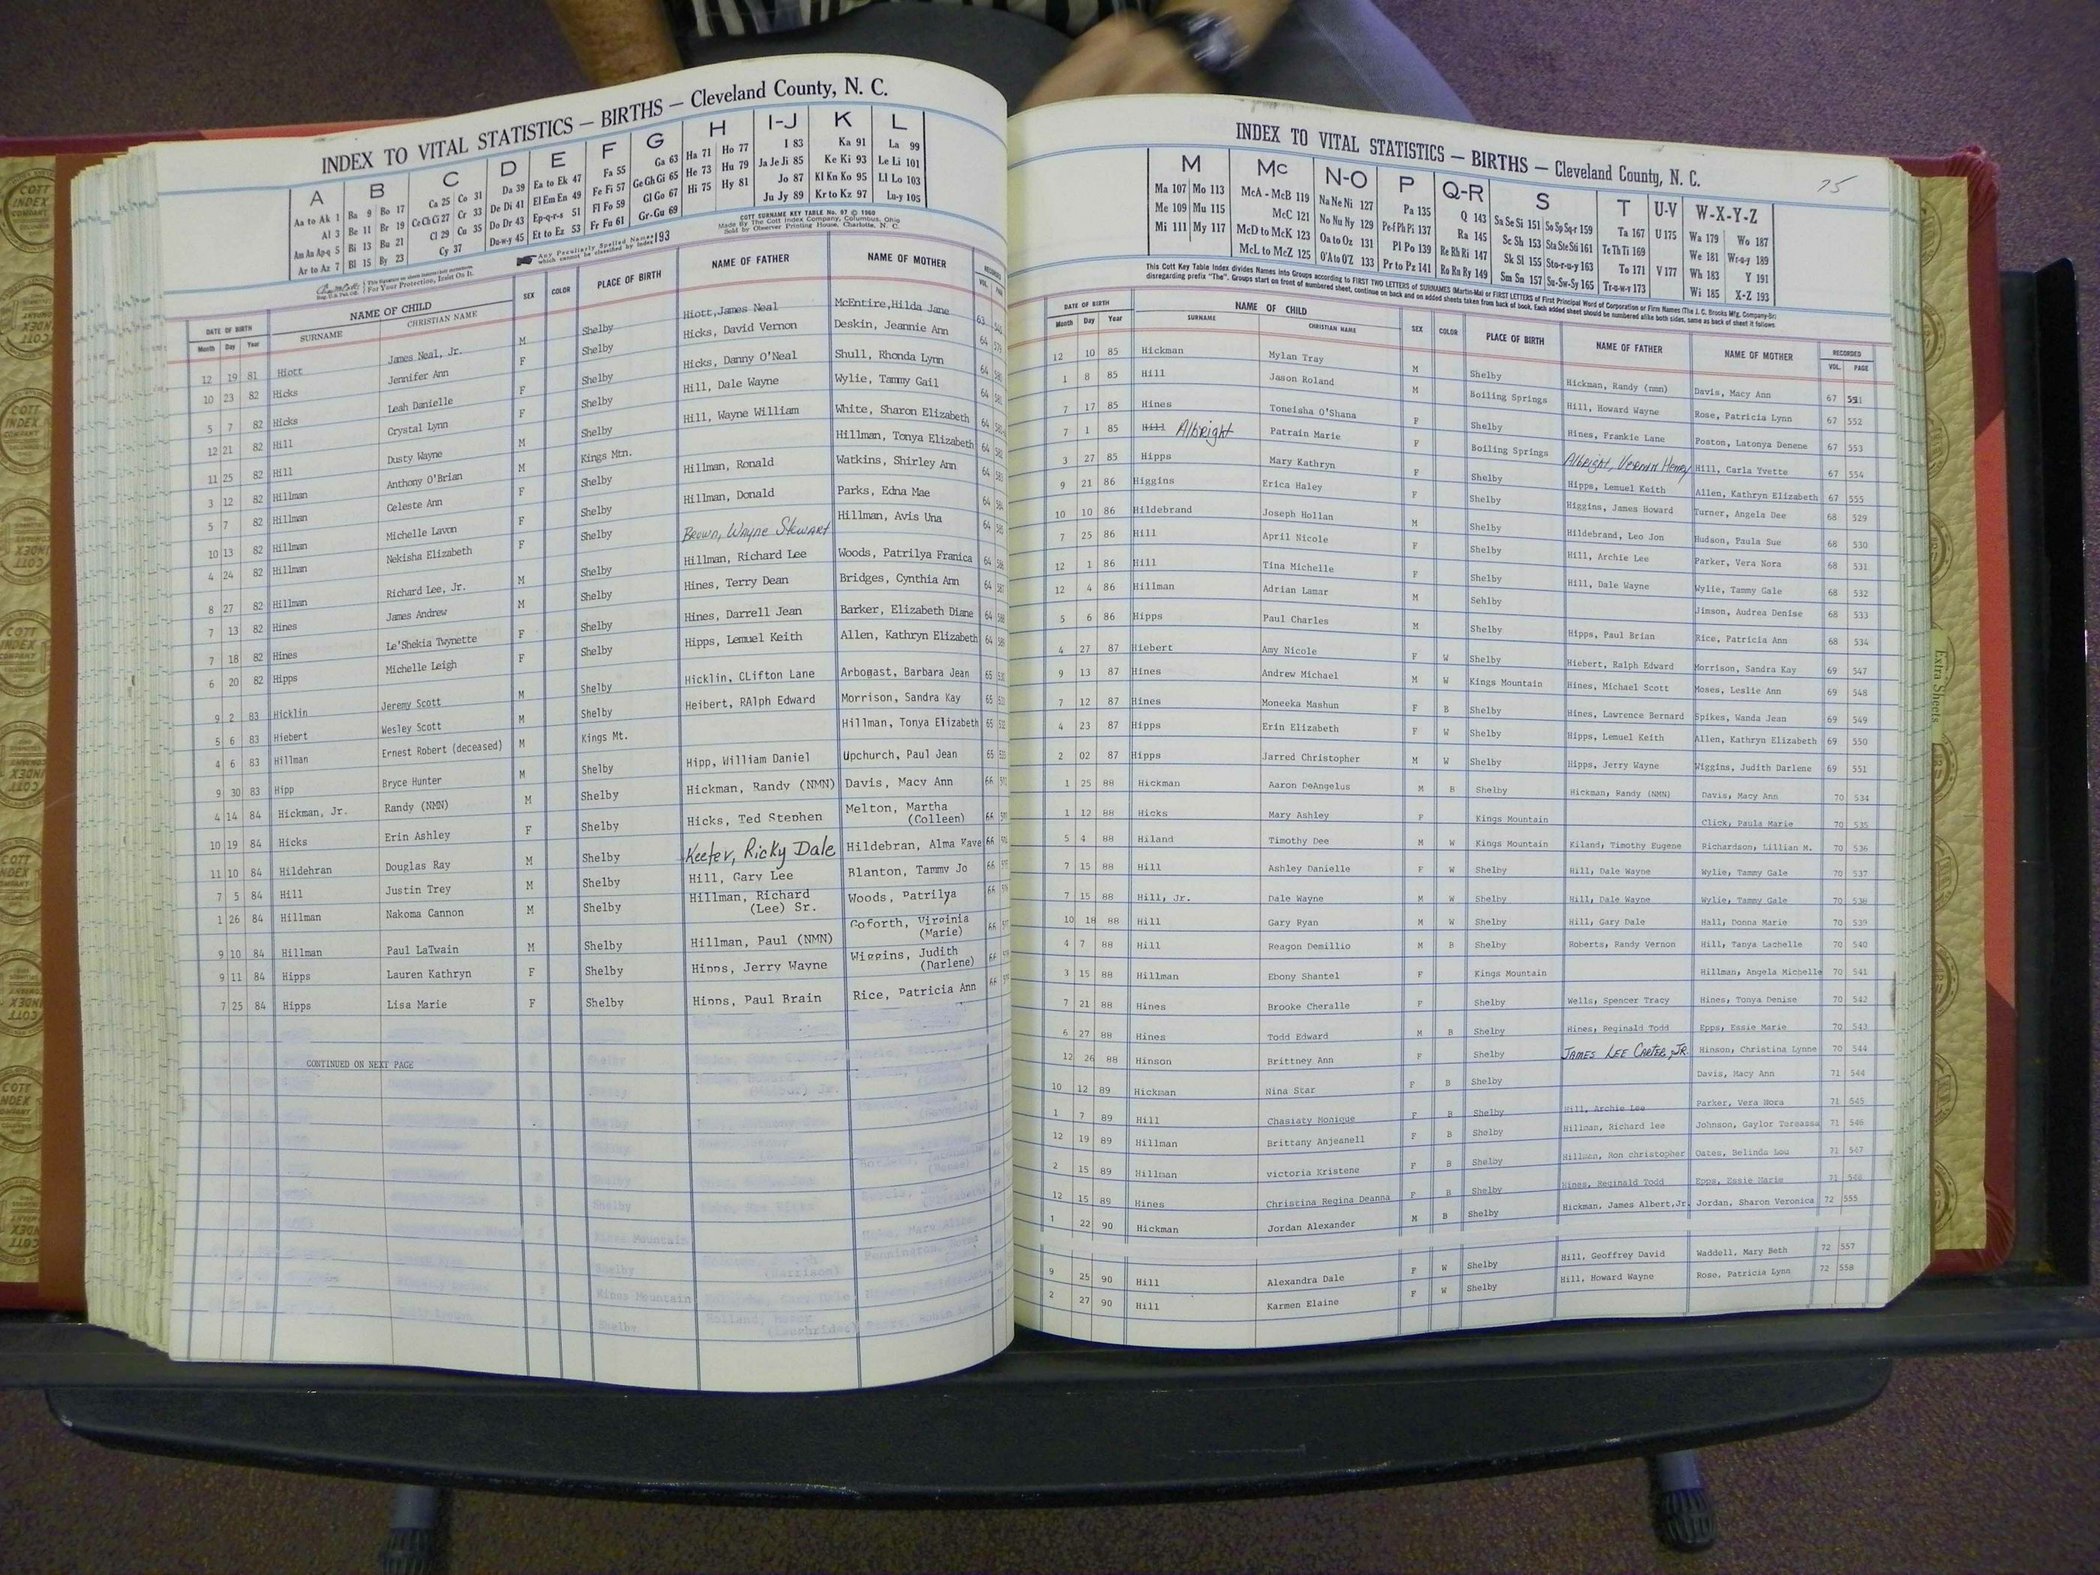 INDEX TO VITAL STATISTICS — BIRTHS — Cleveland County, N. C.
A B C D E F G H I-J K L
Aa to Ak 1 Ba 9 Bo 17 Ca 25 Co 31 Da 39 Ea to Ek 47 Fa 55 Ga 63 Ha 71 Ho 77 I 83 Ka 91 La 99
Al 3 Be 11 Br 19 Ce Ch Ci 27 Cr 33 De Di 41 El Em En 49 Fe Fi 57 Ge Gh Gi 65 He 73 Hu 79 Ja Je Ji 85 Ke Ki 93 Le Li 101
Am An Ap-q 5 Bi 13 Bu 21 Cl 29 Cu 35 Do Dr 43 Ep-q-r-s 51 Fl Fo 59 Gl Go 67 Hi 75 Hy 81 Jo 87 Kl Kn Ko 95 Ll Lo 103
Ar to Az 7 Bl 15 By 23 Cy 37 Du-w-y 45 Et to Ez 53 Fr Fu 61 Gr-Gu 69 Ju Jy 89 Kr to Kz 97 Lu-y 105
COTT SURNAME KEY TABLE No. 97 © 1960
Made By The Cott Index Company, Columbus, Ohio
Sold by Observer Printing House, Charlotte, N. C.
Any Peculiarly Spelled Names which cannot be classified by Index 193
For Your Protection, Insist On It.
DATE OF BIRTH NAME OF CHILD SEX COLOR PLACE OF BIRTH NAME OF FATHER NAME OF MOTHER RECORDED
Month Day Year SURNAME CHRISTIAN NAME VOL.
12 19 81 Hiott James Neal, Jr. M Shelby Hiott,James Neal McEntire,Hilda Jane 63
10 23 82 Hicks Jennifer Ann F Shelby Hicks, David Vernon Deskin, Jeannie Ann 64 579
5 7 82 Hicks Leah Danielle F Shelby Hicks, Danny O'Neal Shull, Rhonda Lynn 64 580
12 21 82 Hill Crystal Lynn F Shelby Hill, Dale Wayne Wylie, Tammy Gail 64 581
11 25 82 Hill Dusty Wayne M Shelby Hill, Wayne William White, Sharon Elizabeth 64
3 12 82 Hillman Anthony O'Brian M Kings Mtn. Hillman, Tonya Elizabeth 64 582
5 7 82 Hillman Celeste Ann F Shelby Hillman, Ronald Watkins, Shirley Ann 64 583
10 13 82 Hillman Michelle Lavon F Shelby Hillman, Donald Parks, Edna Mae 64 584
4 24 82 Hillman Nekisha Elizabeth F Shelby Brown, Wayne Stewart Hillman, Avis Una 64 585
8 27 82 Hillman Richard Lee, Jr. M Shelby Hillman, Richard Lee Woods, Patrilya Franica 64 586
7 13 82 Hines James Andrew M Shelby Hines, Terry Dean Bridges, Cynthia Ann 64 587
7 18 82 Hines Le'Shekia Twynette F Shelby Hines, Darrell Jean Barker, Elizabeth Diane 64 588
6 20 82 Hipps Michelle Leigh F Shelby Hipps, Lemuel Keith Allen, Kathryn Elizabeth 64 589
9 2 83 Hicklin Jeremy Scott M Shelby Hicklin, CLifton Lane Arbogast, Barbara Jean 65
5 6 83 Hiebert Wesley Scott M Shelby Heibert, RAlph Edward Morrison, Sandra Kay 65
4 6 83 Hillman Ernest Robert (deceased) M Kings Mt. Hillman, Tonya Elizabeth 65
9 30 83 Hipp Bryce Hunter M Shelby Hipp, William Daniel Upchurch, Paul Jean 65
4 14 84 Hickman, Jr. Randy (NMN) M Shelby Hickman, Randy (NMN) Davis, Macy Ann 66
10 19 84 Hicks Erin Ashley F Shelby Hicks, Ted Stephen Melton, Martha (Colleen) 66
11 10 84 Hildehran Douglas Ray M Shelby Keeter, Ricky Dale Hildebran, Alma Faye 66
7 5 84 Hill Justin Trey M Shelby Hill, Gary Lee Blanton, Tammy Jo 66
1 26 84 Hillman Nakoma Cannon M Shelby Hillman, Richard (Lee) Sr. Woods, Patrilya 66
9 10 84 Hillman Paul LaTwain M Shelby Hillman, Paul (NMN) Goforth, Virginia (Marie) 66
9 11 84 Hipps Lauren Kathryn F Shelby Hipps, Jerry Wayne Wiggins, Judith (Darlene) 66
7 25 84 Hipps Lisa Marie F Shelby Hipps, Paul Brain Rice, Patricia Ann 66
CONTINUED ON NEXT PAGE
INDEX TO VITAL STATISTICS — BIRTHS — Cleveland County, N. C.
75
M Mc N-O P Q-R S T U-V W-X-Y-Z
Ma 107 Mo 113 McA - McB 119 Na Ne Ni 127 Pa 135 Q 143 Sa Se Si 151 So Sp Sq-r 159 Ta 167 U 175 Wa 179 Wo 187
Me 109 Mu 115 McC 121 No Nu Ny 129 Pe-f Ph Pi 137 Ra 145 Sc Sh 153 Sta Ste Sti 161 Te Th Ti 169 We 181 Wr-u-y 189
Mi 111 My 117 McD to McK 123 Oa to Oz 131 Pl Po 139 Re Rh Ri 147 Sk Sl 155 Sto-r-u-y 163 To 171 V 177 Wh 183 Y 191
McL to McZ 125 O'A to O'Z 133 Pr to Pz 141 Ro Rn Ry 149 Sm Sn 157 Su-Sw-Sy 165 Tr-u-w-y 173 Wi 185 X-Z 193
This Cott Key Table Index divides Names into Groups according to FIRST TWO LETTERS of SURNAMES (Martin-Ma) or FIRST LETTERS of First Principal Word of Corporation or Firm Names (The J. C. Brocks Mfg. Company-Br)
disregarding prefix "The". Groups start on front of numbered sheet, continue on back and on added sheets taken from back of book. Each added sheet should be numbered alike both sides, same as back of sheet it follows
DATE OF BIRTH NAME OF CHILD SEX COLOR PLACE OF BIRTH NAME OF FATHER NAME OF MOTHER RECORDED
Month Day Year SURNAME CHRISTIAN NAME VOL. PAGE
12 10 85 Hickman Mylan Tray M Shelby Hickman, Randy (nmn) Davis, Macy Ann 67 551
1 8 85 Hill Jason Roland M Boiling Springs Hill, Howard Wayne Rose, Patricia Lynn 67 552
7 17 85 Hines Toneisha O'Shana F Shelby Hines, Frankie Lane Poston, Latonya Denene 67 553
7 1 85 Hill Albright Patrain Marie F Boiling Springs Albright, Vernon Henry Hill, Carla Yvette 67 554
3 27 85 Hipps Mary Kathryn F Shelby Hipps, Lemuel Keith Allen, Kathryn Elizabeth 67 555
9 21 86 Higgins Erica Haley F Shelby Higgins, James Howard Turner, Angela Dee 68 529
10 10 86 Hildebrand Joseph Hollan M Shelby Hildebrand, Leo Jon Hudson, Paula Sue 68 530
7 25 86 Hill April Nicole F Shelby Hill, Archie Lee Parker, Vera Nora 68 531
12 1 86 Hill Tina Michelle F Shelby Hill, Dale Wayne Wylie, Tammy Gale 68 532
12 4 86 Hillman Adrian Lamar M Sehlby Jimson, Audrea Denise 68 533
5 6 86 Hipps Paul Charles M Shelby Hipps, Paul Brian Rice, Patricia Ann 68 534
4 27 87 Hiebert Amy Nicole F W Shelby Hiebert, Ralph Edward Morrison, Sandra Kay 69 547
9 13 87 Hines Andrew Michael M W Kings Mountain Hines, Michael Scott Moses, Leslie Ann 69 548
7 12 87 Hines Moneeka Mashun F B Shelby Hines, Lawrence Bernard Spikes, Wanda Jean 69 549
4 23 87 Hipps Erin Elizabeth F W Shelby Hipps, Lemuel Keith Allen, Kathryn Elizabeth 69 550
2 02 87 Hipps Jarred Christopher M W Shelby Hipps, Jerry Wayne Wiggins, Judith Darlene 69 551
1 25 88 Hickman Aaron DeAngelus M B Shelby Hickman, Randy (NMN) Davis, Macy Ann 70 534
1 12 88 Hicks Mary Ashley F Kings Mountain Click, Paula Marie 70 535
5 4 88 Hiland Timothy Dee M W Kings Mountain Kiland, Timothy Eugene Richardson, Lillian M. 70 536
7 15 88 Hill Ashley Danielle F W Shelby Hill, Dale Wayne Wylie, Tammy Gale 70 537
7 15 88 Hill, Jr. Dale Wayne M W Shelby Hill, Dale Wayne Wylie, Tammy Gale 70 538
10 18 88 Hill Gary Ryan M W Shelby Hill, Gary Dale Hall, Donna Marie 70 539
4 7 88 Hill Reagon Demillio M B Shelby Roberts, Randy Vernon Hill, Tanya Lachelle 70 540
3 15 88 Hillman Ebony Shantel F Kings Mountain Hillman, Angela Michelle 70 541
7 21 88 Hines Brooke Cheralle F Shelby Wells, Spencer Tracy Hines, Tonya Denise 70 542
6 27 88 Hines Todd Edward M B Shelby Hines, Reginald Todd Epps, Essie Marie 70 543
12 26 88 Hinson Brittney Ann F Shelby James Lee Carter, Jr. Hinson, Christina Lynne 70 544
10 12 89 Hickman Nina Star F B Shelby Davis, Macy Ann 71 544
1 7 89 Hill Chasiaty Monique F B Shelby Hill, Archie Lee Parker, Vera Nora 71 545
12 19 89 Hillman Brittany Anjeanell F B Shelby Hillman, Richard lee Johnson, Gaylor Tereassa 71 546
2 15 89 Hillman victoria Kristene F B Shelby Hillman, Ron christopher Oates, Belinda Lou 71 547
12 15 89 Hines Christina Regina Deanna F B Shelby Hines, Reginald Todd Epps, Essie Marie 71 548
1 22 90 Hickman Jordan Alexander M B Shelby Hickman, James Albert,Jr. Jordan, Sharon Veronica 72 555
9 25 90 Hill Alexandra Dale F W Shelby Hill, Geoffrey David Waddell, Mary Beth 72 557
2 27 90 Hill Karmen Elaine F W Shelby Hill, Howard Wayne Rose, Patricia Lynn 72 558
Extra Sheets
COTT INDEX COMPANY